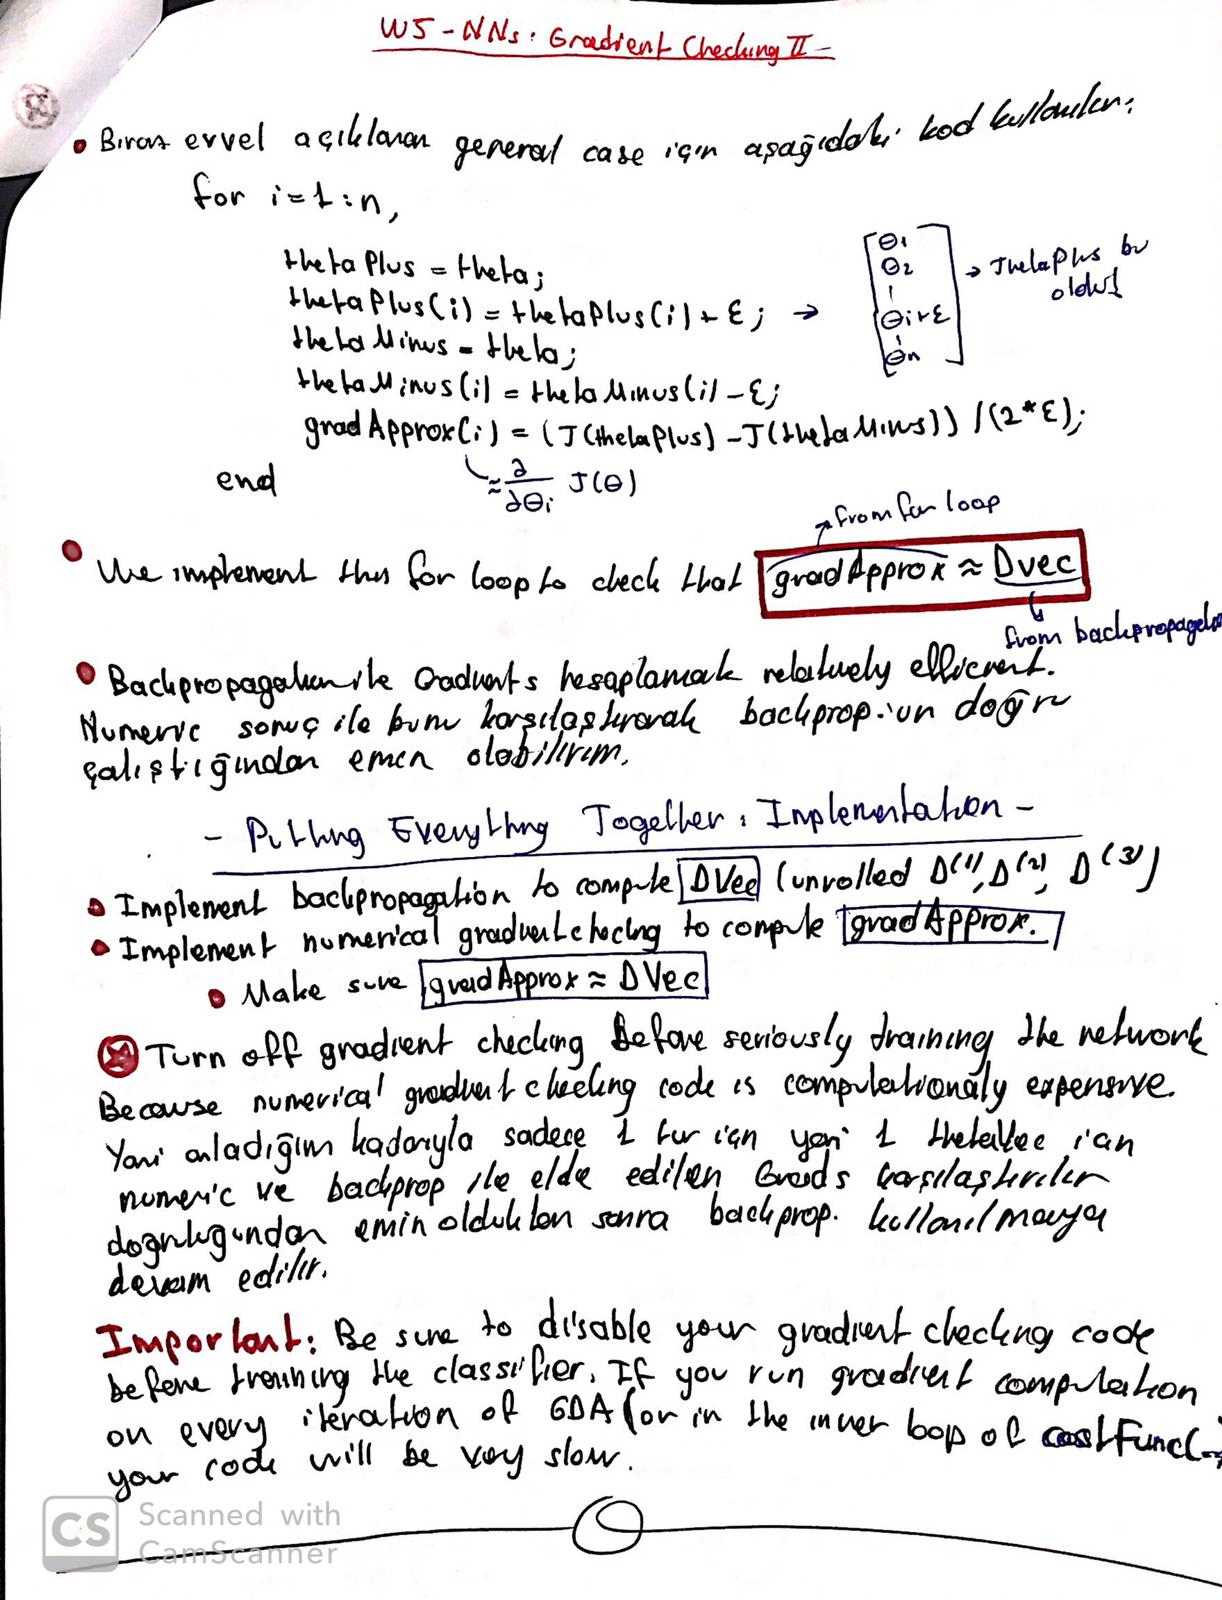 W5 - NNs: Gradient Checking II -
• Biraz evvel açıklanan general case için aşağıdaki kod kullanılır:
for i=1:n,
thetaPlus = theta;
thetaPlus(i) = thetaPlus(i) + ε; →
thetaMinus = theta;
thetaMinus(i) = thetaMinus(i) - ε;
gradApprox(i) = (J(thetaPlus) - J(thetaMinus)) / (2*ε);
end
[θ1
θ2
⋮
θi+ε
⋮
θn]
→ ThetaPlus bu
oldu
≈ ∂/∂θi J(θ)
from for loop
• We implement this for loop to check that gradApprox ≈ Dvec
from
• Backpropagation ile Gradients hesaplamak relatively efficient.
Numeric sonuç ile bunu karşılaştırarak backprop.'un doğru
çalıştığından emin olabilirim.
- Putting Everything Together: Implementation -
• Implement backpropagation to compute DVec (unrolled D(1), D(2), D(3))
• Implement numerical gradient checking to compute gradApprox.
• Make sure gradApprox ≈ DVec
Turn off gradient checking. Before seriously training the network
Because numerical gradient checking code is computationaly expensive.
Yani anladığım kadarıyla sadece 1 tur için yani 1 thetaVec için
numeric ve backprop ile elde edilen Grads karşılaştırılır
doğruluğundan emin olduktan sonra backprop. kullanılmaya
devam edilir.
Important: Be sure to disable your gradient checking code
before training the classifier. If you run gradient computation
on every iteration of GDA (or in the inner loop of costFunc(..)
your code will be very slow.
CS Scanned with
CamScanner